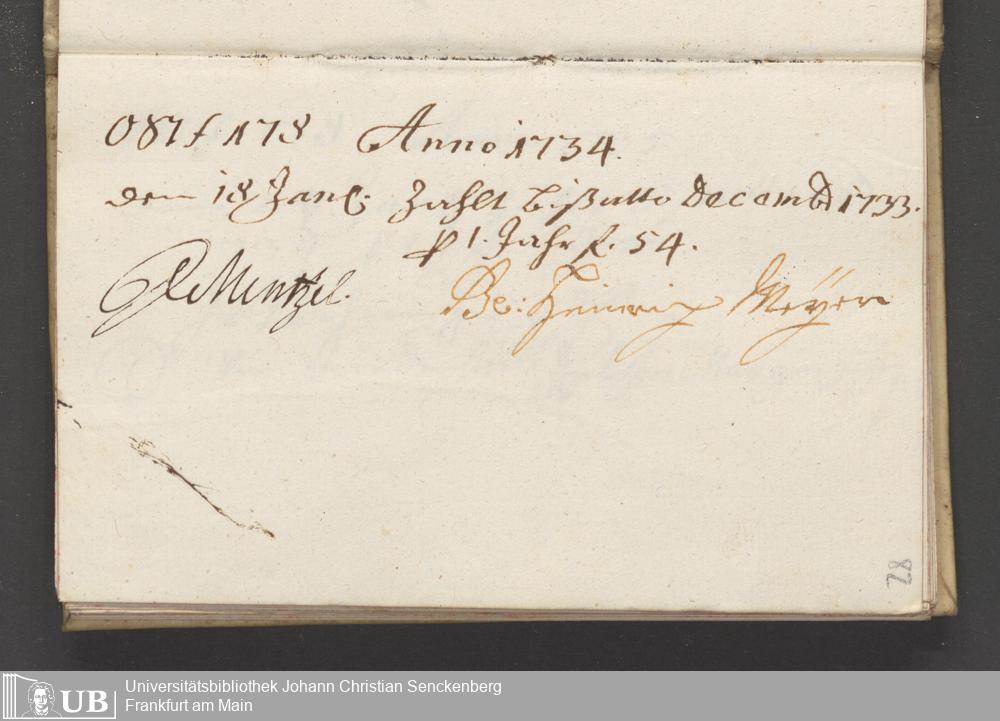 Anno 1734.
den 18 Jan: Zahlt biß ulto Decemb 1733.
p 1. Jahr f. 54.
Mentzel. Be: Hinrich Meÿer
28
UB
Universitätsbibliothek Johann Christian Senckenberg
Frankfurt am Main